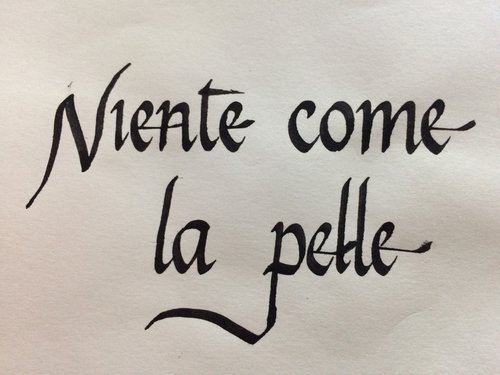 Niente come
la pelle